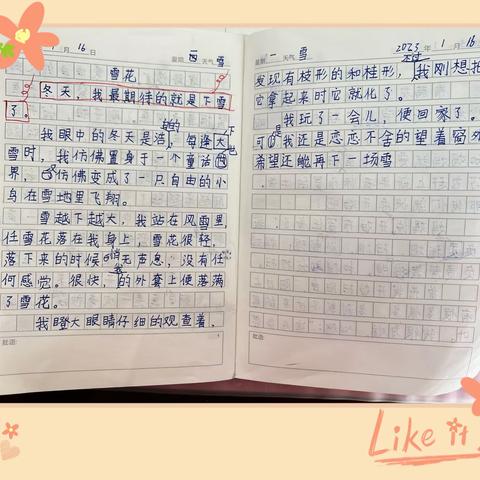 月16日 星期四 天气雪
雪花
冬天，我最期待的就是下雪
了。
我眼中的冬天是洁白的，每逢下大
雪时，我仿佛置身于一个童话世
界，仿佛变成了一只自由的小
鸟在雪地里飞翔。
雪越下越大，我站在风雪里，
任雪花落在我身上，雪花很轻，
落下来的时候悄无声息，没有任
何感觉。很快，我的外套上便落满
了雪花。
我瞪大眼睛仔细的观查着，
批语：
星期一 天气雪 2023年1月16
发现有枝形的和柱形，我刚想把
它拿起来时它就化了。
我玩了一会儿，便回家了。
可我还是恋恋不舍的望着窗外
希望还能再下一场雪
批语：
Like it